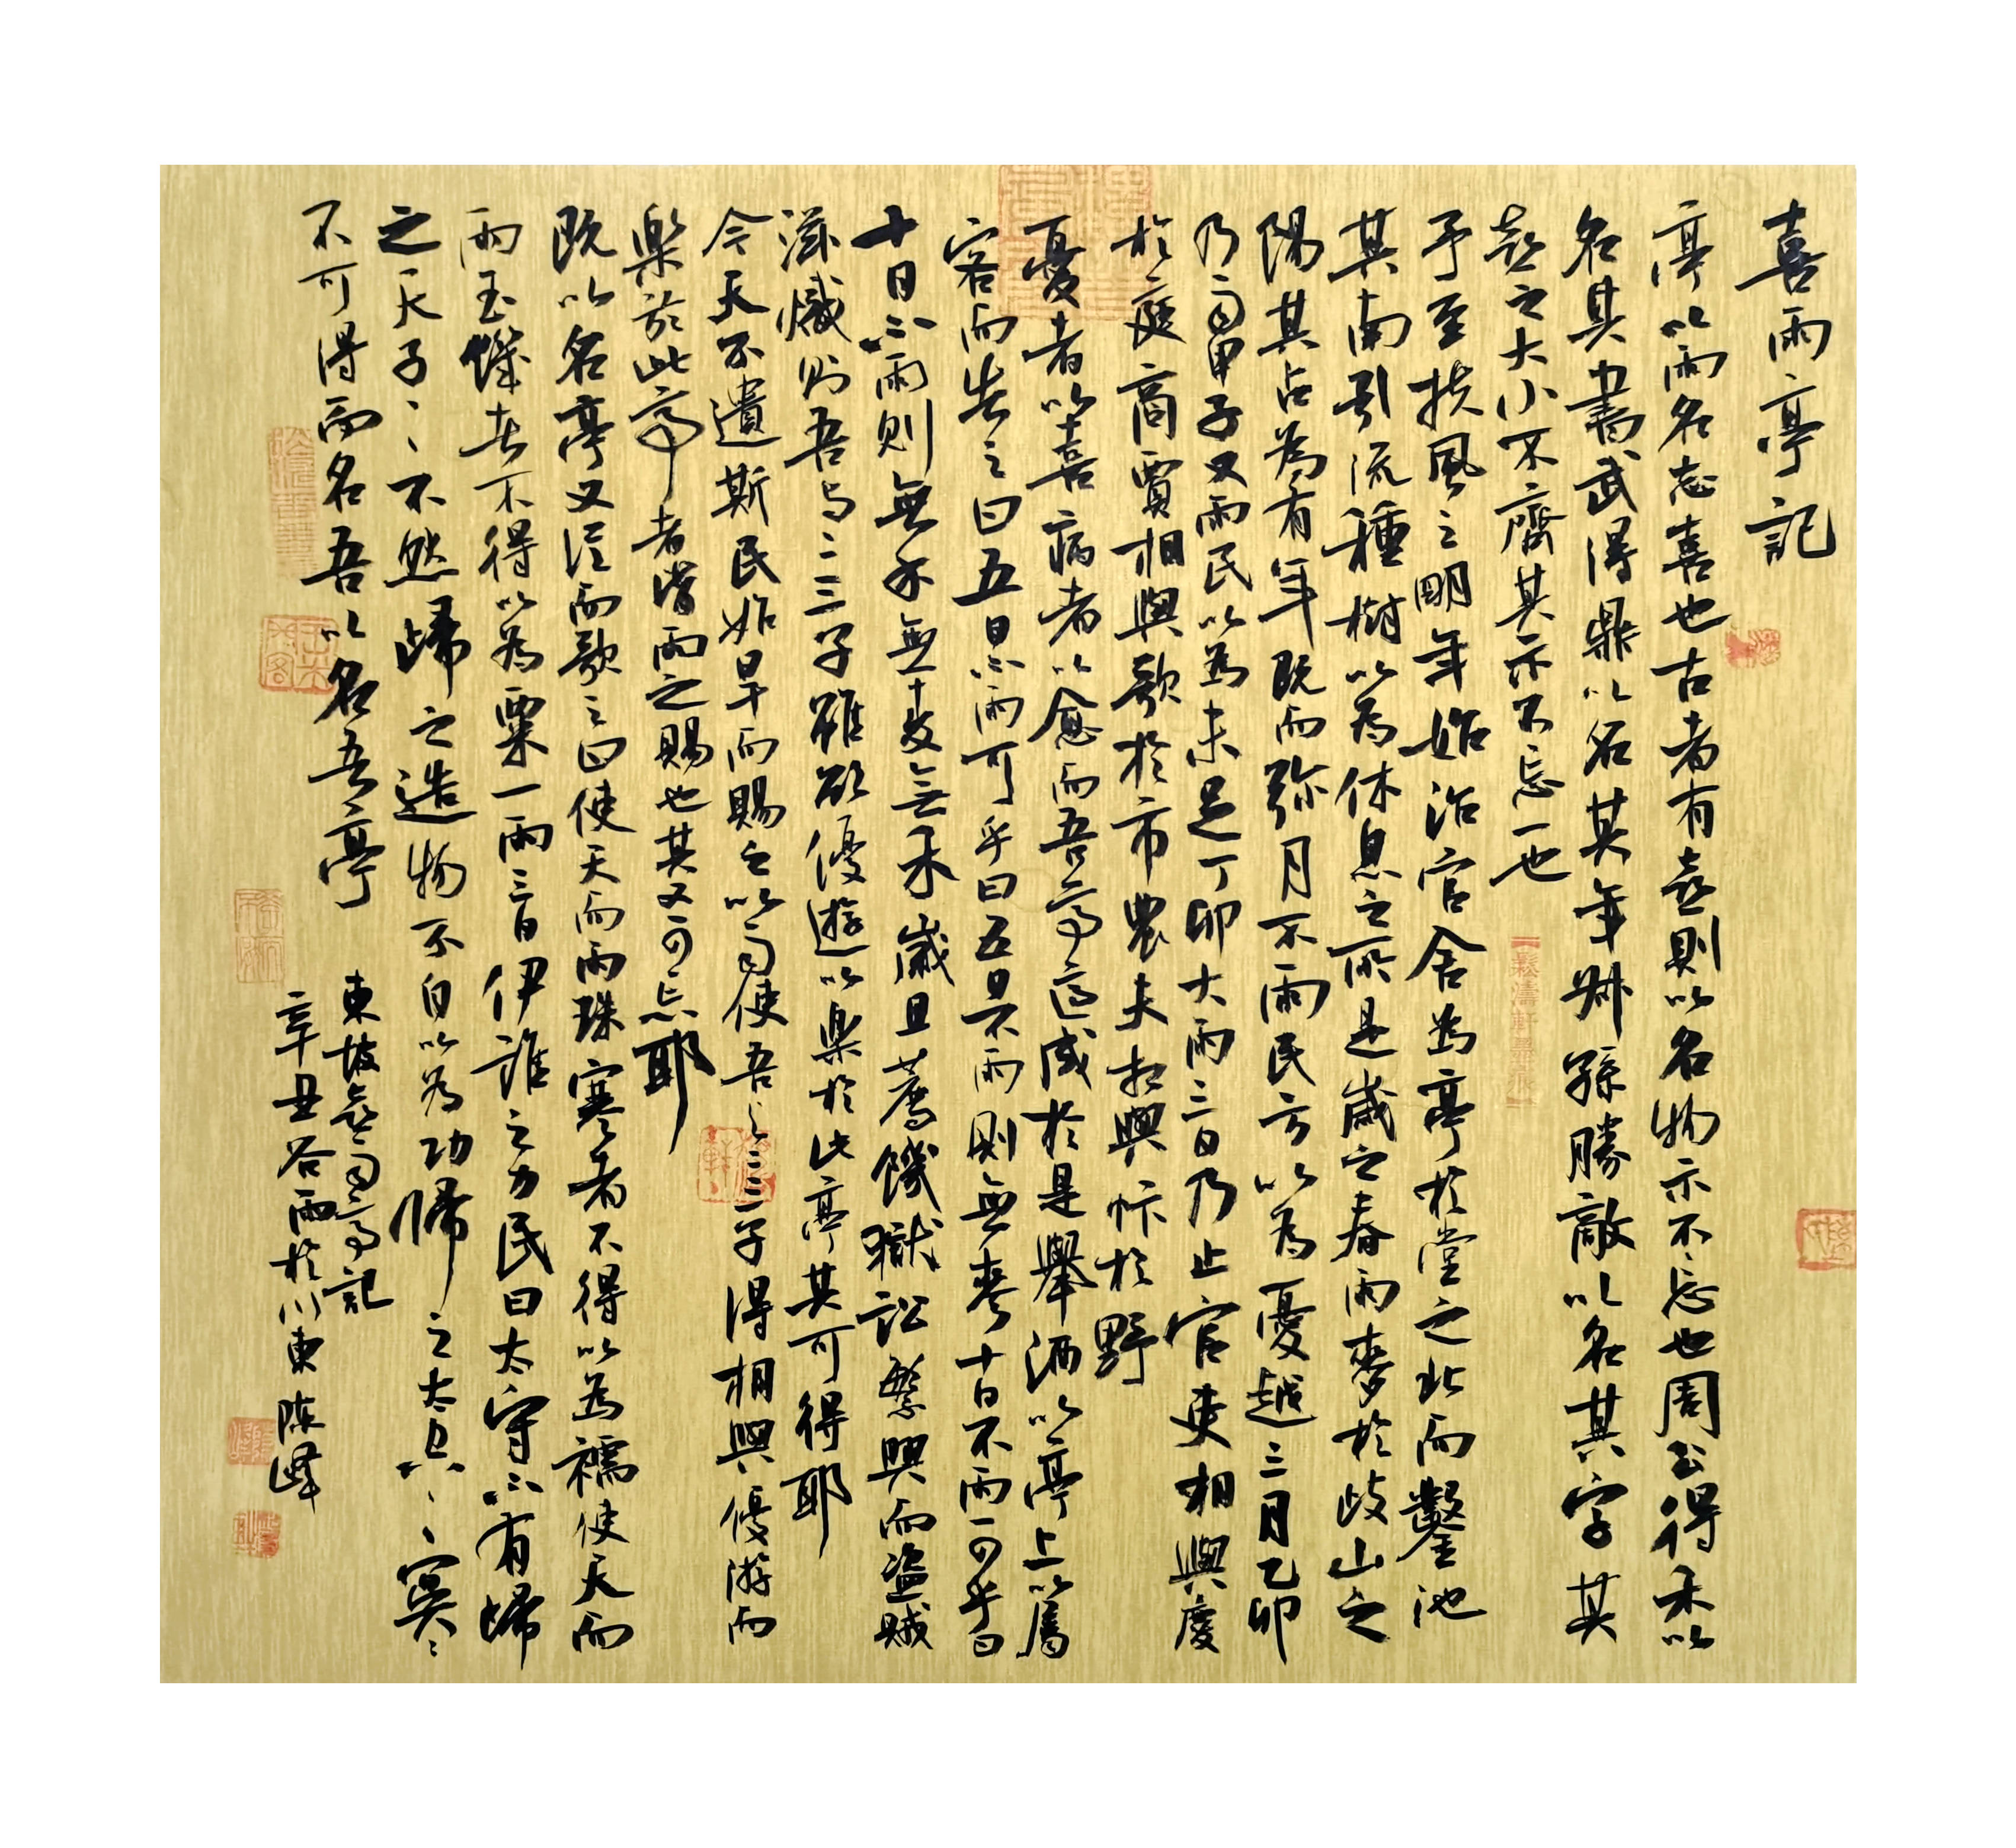 喜雨亭記
亭以雨名志喜也古者有喜則以名物示不忘也周公得禾以
名其書漢武得鼎以名其年叔孫勝敵以名其字其
喜之大小不齊其示不忘一也
予至扶風之明年始治官舍為亭於堂之北而鑿池
其南引流種樹以為休息之所是歲之春雨麥於岐山之
陽其占為有年既而彌月不雨民方以為憂越三月乙卯
乃雨甲子又雨民以為未足丁卯大雨三日乃止官吏相與慶
於庭商賈相與歌於市農夫相與忭於野
憂者以喜病者以愈而吾亭適成於是舉酒以亭上以屬
客而告之曰五日不雨可乎曰五日不雨則無麥十日不雨可乎曰
十日不雨則無禾無麥無禾歲且薦饑獄訟繁興而盜賊
滋熾則吾與二三子雖欲優遊以樂於此亭其可得耶
今天不遺斯民始旱而賜之以雨使吾與二三子得相與優游而
樂於此亭者皆雨之賜也其又可忘耶
既以名亭又從而歌之曰使天而雨珠寒者不得以為襦使天而
雨玉饑者不得以為粟一雨三日伊誰之力民曰太守不有歸
之天子〻不然歸之造物不自以為功歸之太空〻冥〻
不可得而名吾以名吾亭
東坡喜雨亭記
辛丑谷雨於川東陳峰